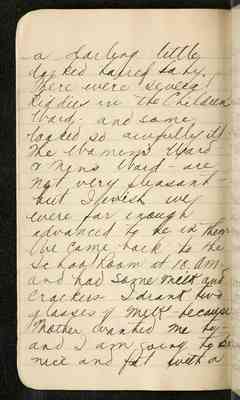 a darling little
haired baby.
There were several
kiddies in the Childrens
Ward - and some
looked so awfully ill
The Women's Ward
& Men's Ward - are
not very pleasant
but I wish we
were far enough
advanced to be in them
We came back to the
School Room at 10. am-
and had some milk and
crackers I drank two
glasses of milk - because
Mother wanted me to -
and I am going to be
nice and fat with a